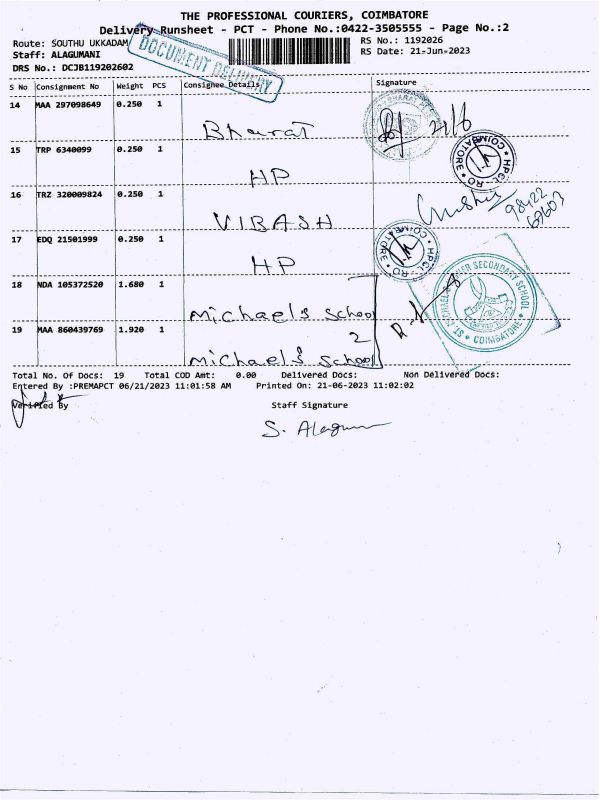 THE PROFESSIONAL COURIERS, COIMBATORE
Delivery Runsheet - PCT - Phone No.:0422-3505555 - Page No.:2
Route: SOUTHU UKKADAM
RS No.: 1192026
Staff: ALAGUMANI
RS Date: 21-Jun-2023
DRS No.: DCJB119202602
DOCUMENT DELIVERY
S No Consignment No Weight PCS Consignee Details Signature
14 MAA 297098649 0.250 1 Bharat 21/6
15 TRP 6340099 0.250 1 HP
HPCL-RO COIMBATORE
16 TRZ 320009824 0.250 1 VIBASH
98422
17 EDQ 21501999 0.250 1 HP
HPCL-RO COIMBATORE
18 NDA 105372520 1.680 1 michael's school
2
19 MAA 860439769 1.920 1 michael's school
ST. MICHAEL'S HIGHER SECONDARY SCHOOL
COIMBATORE
Total No. Of Docs: 19 Total COD Amt: 0.00 Delivered Docs: Non Delivered Docs:
Entered By :PREMAPCT 06/21/2023 11:01:58 AM Printed On: 21-06-2023 11:02:02
Verified By Staff Signature
S. Alagum